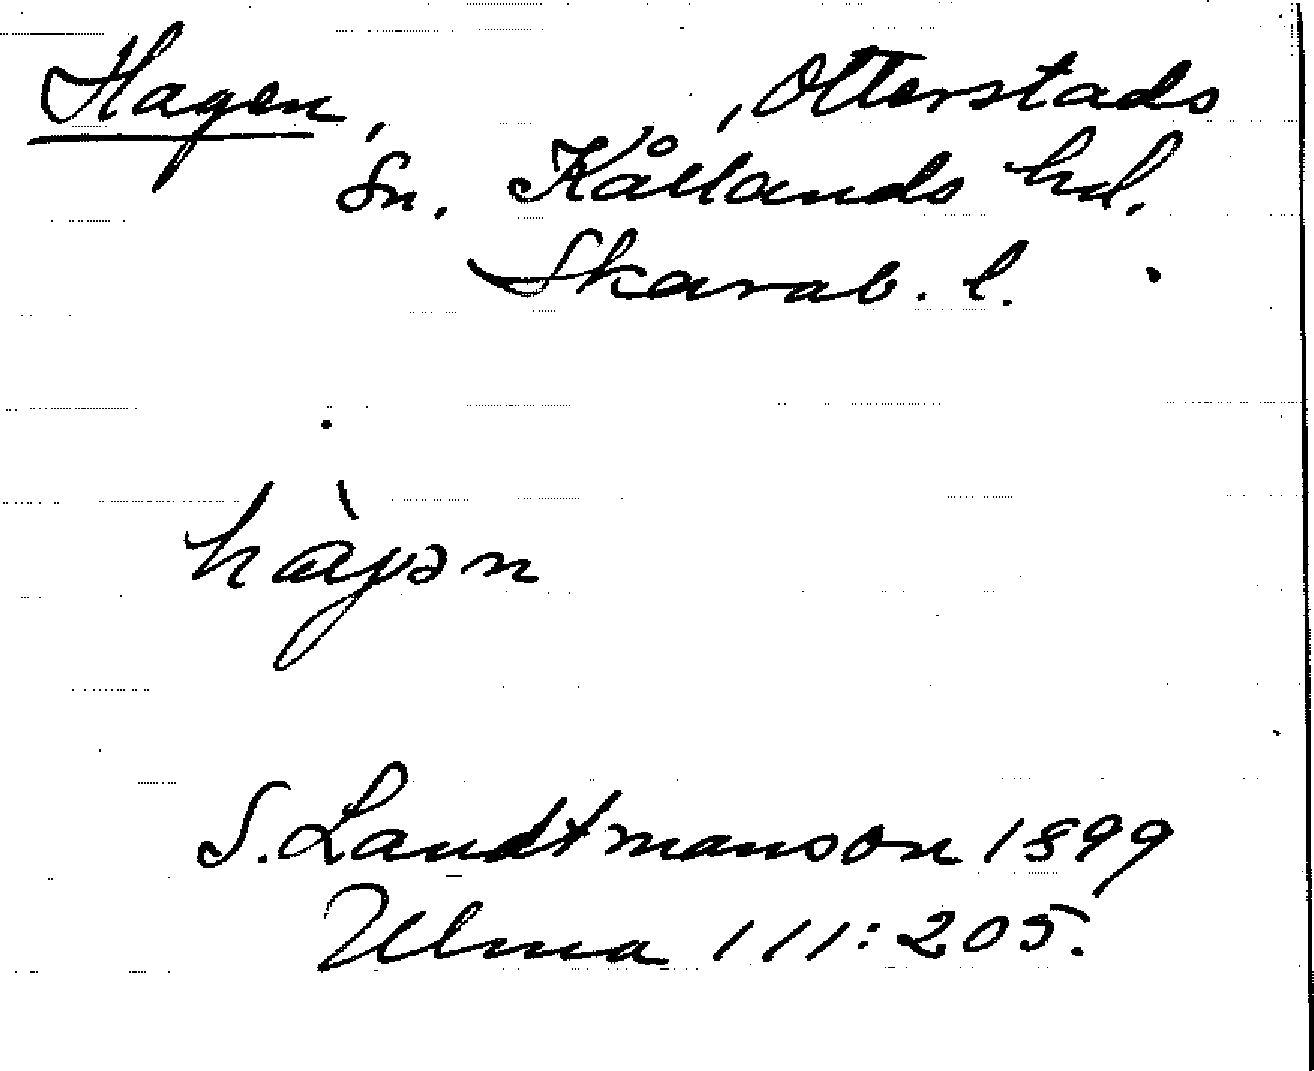 Hagen, , Otterstads
Sn. Kållands hd.
Skarab. l.
hàgən
S. Landtmanson 1899
Ulma 111:205.